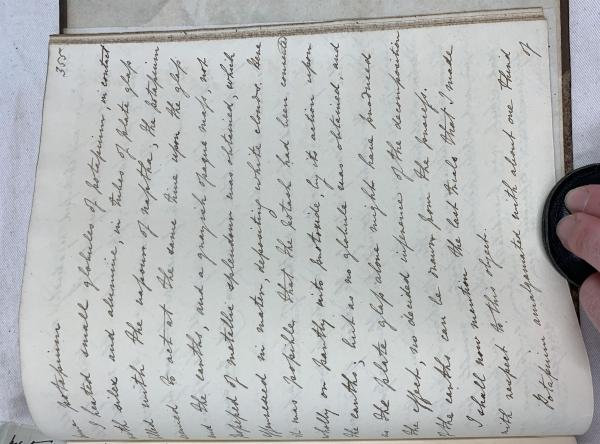 355
potassium
I heated small globules of potassium, in contact
the silex and alumine, in tubes of plate glass
with the vapour of naptha; the potassium
to act at the same time upon the glass
the earths, and a grayish opaque mass, not
of metallic splendour was obtained, which
effervesced in water, depositing white clouds. Here
it was possible that the potash had been converted
wholly or partly into protoxide, by its action upon
the earths; but as no globule was obtained, and
as the plate glass alone might have produced
the effect, no decided inference of the decomposition
of the earths can be drawn from the process.
I shall now mention the last trials that I made
with respect to this object.
Potassium amalgamated with about one third
of